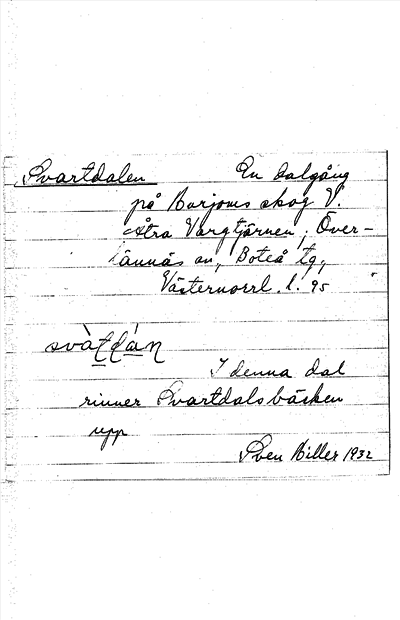 Svartdalen En dalgång
på Barjoms skog V.
Åtra Vargtjärnen, Över-
lännäs sn, Boteå tg,
Västernorrl. l. 95
svàtdán
I denna dal
rinner Svartdalsbäcken
upp
Sven Hiller 1932